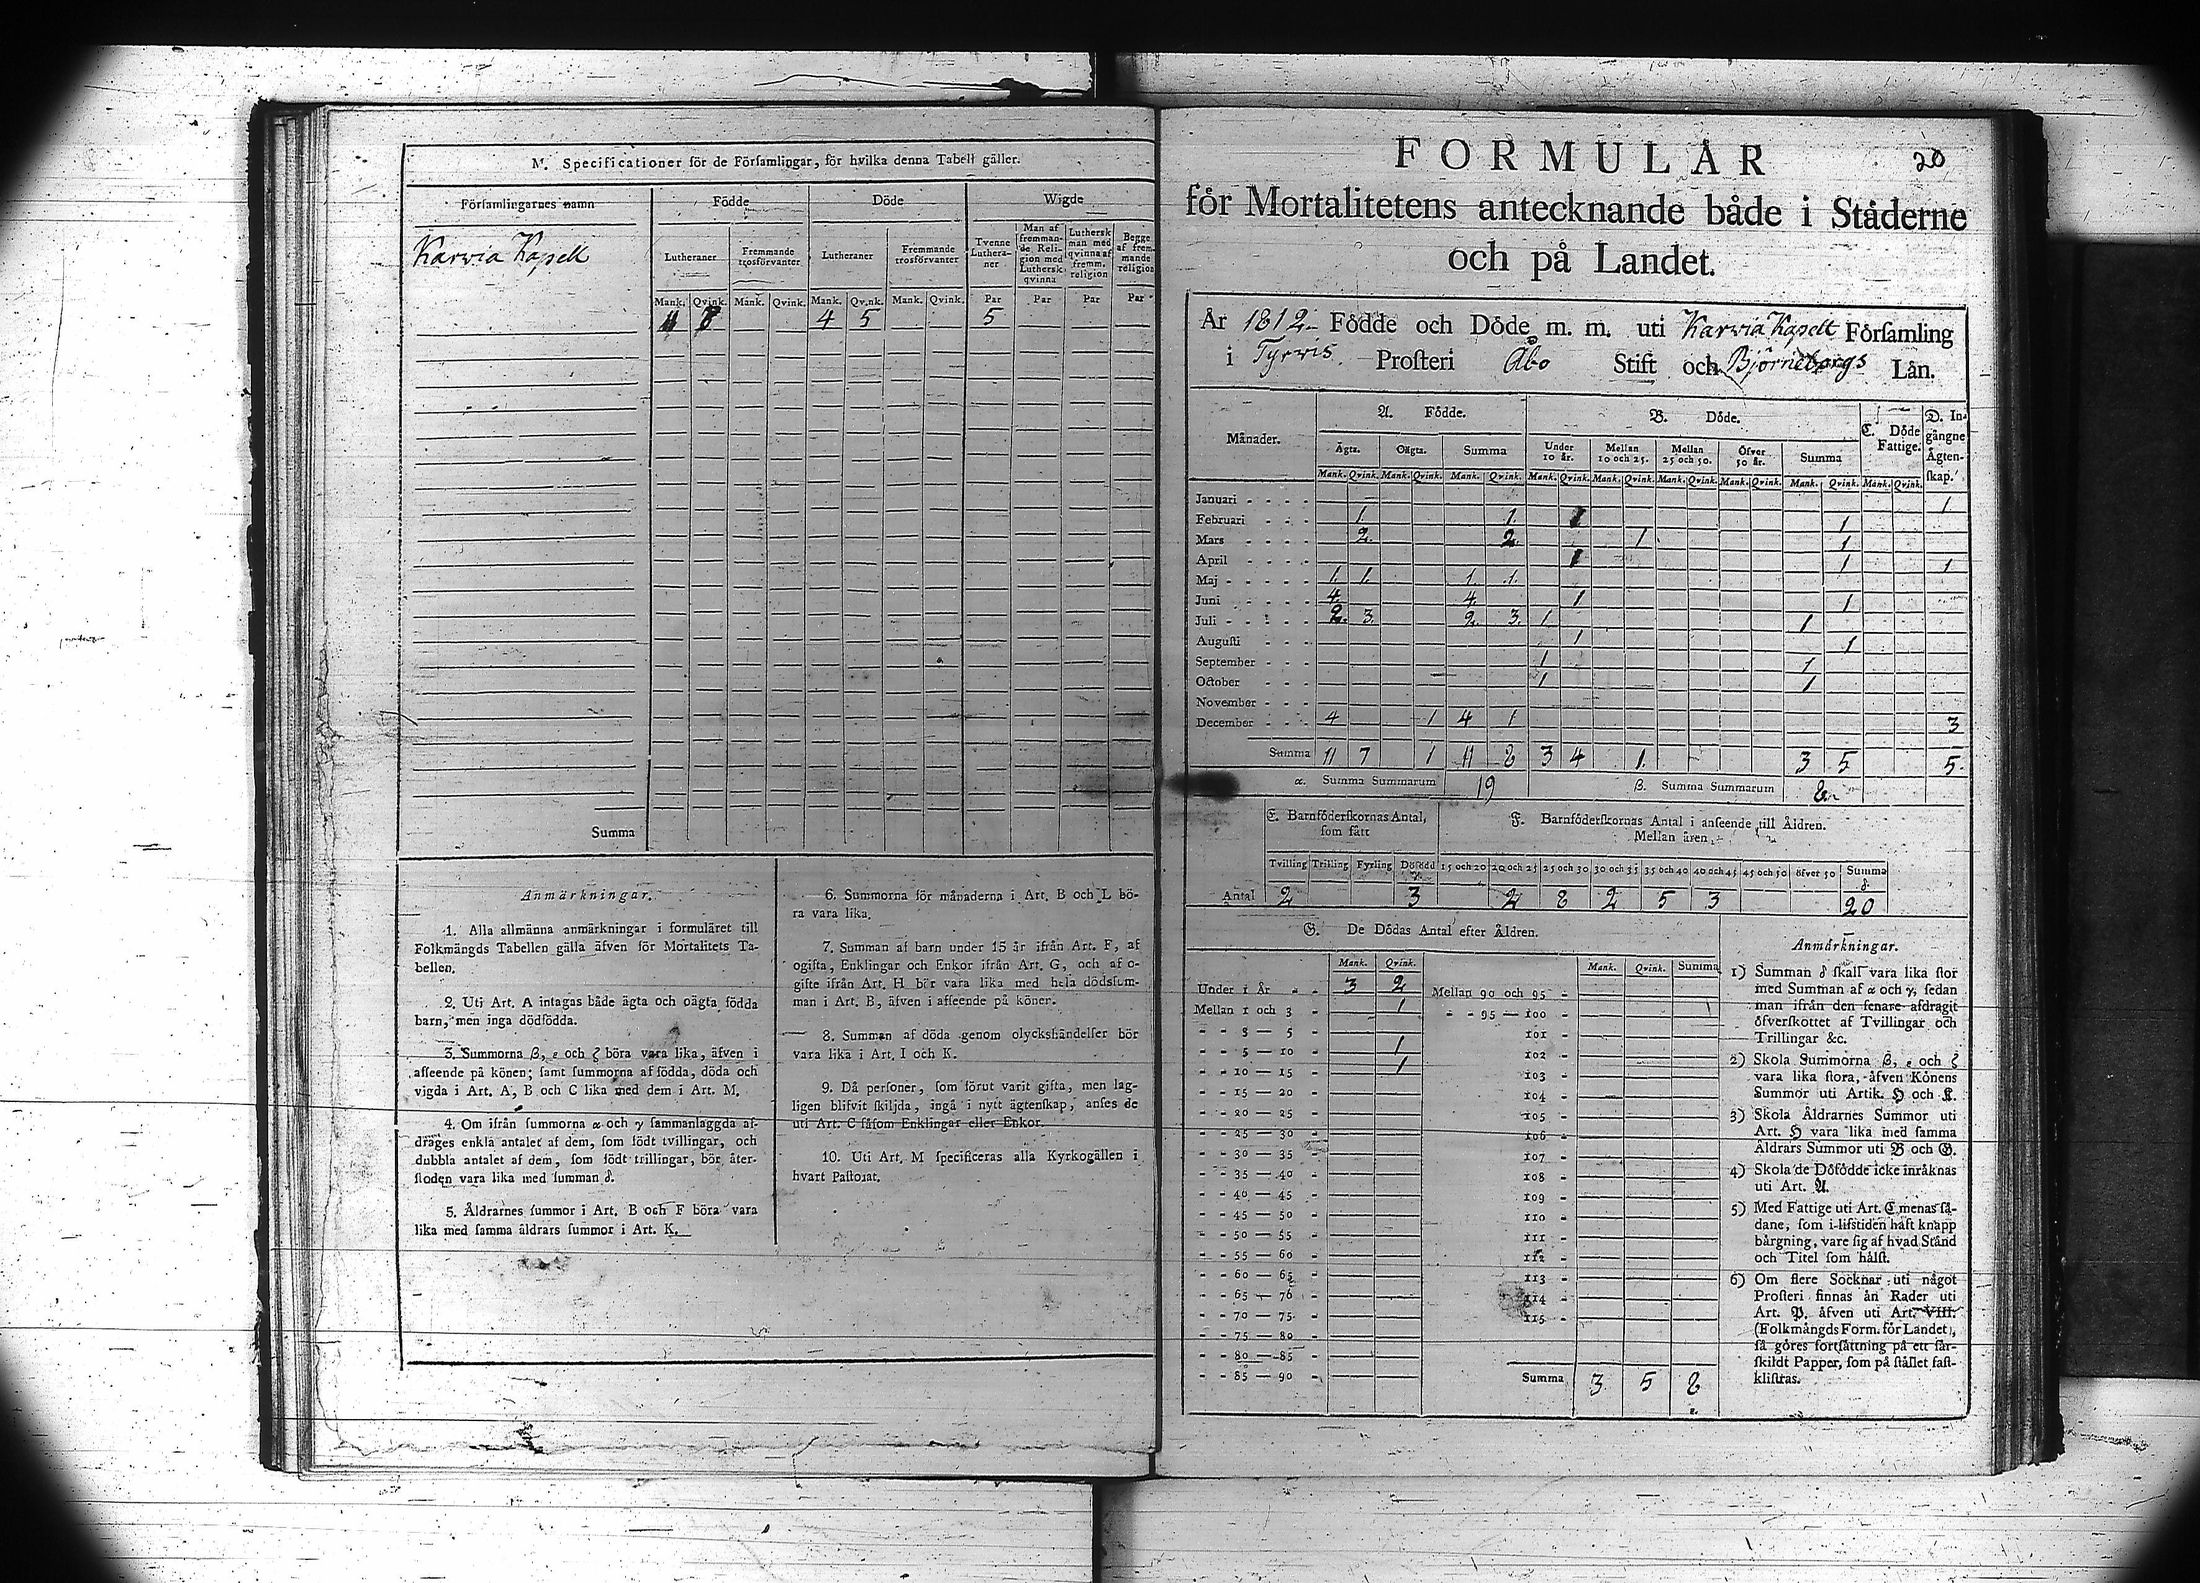 M. Specificationer för de Församlingar, för hvilka denna Tabell gäller.
Församlingarnes namn
Födde
Döde
Wigde
Lutheraner
Fremmande trosförvanter
Lutheraner
Fremmande trosförvanter
Tvenne Lutheraner
Man af fremmande Religion med Luthersk qvinna
Luthersk man med qvinna af fremm. religion
Begge af fremmande religion
Mank. Qvink. Mank. Qvink. Mank. Qvink. Mank. Qvink. Par Par Par Par
Karvia Kapell
11 8 4 5 5
Summa
Anmärkningar.
1. Alla allmänna anmärkningar i formuläret till
Folkmängds Tabellen gälla äfven för Mortalitets Ta-
bellen.
2. Uti Art. A intagas både ägta och oägta födda
barn, men inga dödfödda.
3. Summorna β, ε och ζ böra vara lika, äfven i
afseende på könen; samt summorna af födda, döda och
vigda i Art. A, B och C lika med dem i Art. M.
4. Om ifrån summorna α och γ sammanlaggda af-
drages enkla antalet af dem, som födt tvillingar, och
dubbla antalet af dem, som födt trillingar, bör åter-
stoden vara lika med summan δ.
5. Åldrarnes summor i Art. B och F böra vara
lika med samma åldrars summor i Art. K.
6. Summorna för månaderna i Art. B och L bö-
ra vara lika.
7. Summan af barn under 15 år ifrån Art. F, af
ogifta, Enklingar och Enkor ifrån Art. G, och af o-
gifte ifrån Art. H bör vara lika med hela dödssum-
man i Art. B, äfven i afseende på könen.
8. Summan af döda genom olyckshändelser bör
vara lika i Art. I och K.
9. Då personer, som förut varit gifta, men lag-
ligen blifvit skiljda, ingå i nytt ägtenskap, anses de
uti Art. C såsom Enklingar eller Enkor.
10. Uti Art. M specificeras alla Kyrkogällen i
hvart Pastorat.
20
FORMULÅR
för Mortalitetens antecknande både i Ståderne
och på Landet.
År 1812 Födde och Döde m. m. uti Karvia Kapell Församling
i Tyrvis Prosteri Åbo Stift och Björneborgs Lån.
Månader.
A. Födde.
B. Döde.
C. Döde Fattige.
D. Ingångne Ågtenskap.
Ägta. Oägta. Summa
Under 10 år. Mellan 10 och 25. Mellan 25 och 50. Öfver 50 år. Summa
Mank. Qvink. Mank. Qvink. Mank. Qvink. Mank. Qvink. Mank. Qvink. Mank. Qvink. Mank. Qvink. Mank. Qvink. Mank. Qvink.
Januari 1
Februari 1 1 1 1
Mars 2 2 1 1
April 1 1 1
Maj 1 1 1 1
Juni 4 4 1 1
Juli 2 3 2 3 1 1
Augusti 1 1
September 1 1
October 1 1
November
December 4 1 4 1 3
Summa 11 7 1 11 8 3 4 1 3 5 5
α. Summa Summarum 19
β. Summa Summarum 8
E. Barnföderskornas Antal, som fått
F. Barnföderskornas Antal i anseende till Åldren.
Mellan åren.
Tvilling Trilling Fyrling Dödfödd γ 15 och 20 20 och 25 25 och 30 30 och 35 35 och 40 40 och 45 45 och 50 öfver 50 Summa δ
Antal 2 3 2 8 2 5 3 20
G. De Dödas Antal efter Åldren.
Mank. Qvink. Mank. Qvink. Summa
Under 1 År 3 2
Mellan 1 och 3 1
3 — 5
5 — 10 1
10 — 15 1
15 — 20
20 — 25
25 — 30
30 — 35
35 — 40
40 — 45
45 — 50
50 — 55
55 — 60
60 — 65
65 — 70
70 — 75
75 — 80
80 — 85
85 — 90
Mellan 90 och 95
95 — 100
101
102
103
104
105
106
107
108
109
110
111
112
113
114
115
Summa 3 5 8
Anmårkningar.
1) Summan δ skall vara lika stor
med Summan af α och γ, sedan
man ifrån den senare afdragit
öfverskottet af Tvillingar och
Trillingar &c.
2) Skola Summorna β, ε och ζ
vara lika stora, äfven Könens
Summor uti Artik. H och K.
3) Skola Åldrarnes Summor uti
Art. H vara lika med samma
Åldrars Summor uti B och G.
4) Skola de Döfödde icke inråknas
uti Art. A.
5) Med Fattige uti Art. C menas så-
dane, som i lifstiden haft knapp
bårgning, vare sig af hvad Stånd
och Titel som hålst.
6) Om flere Socknar uti något
Prosteri finnas ån Rader uti
Art. P, åfven uti Art. VIII.
(Folkmångds Form. för Landet),
så göres fortsåttning på ett sår-
skildt Papper, som på stället fast-
klistras.